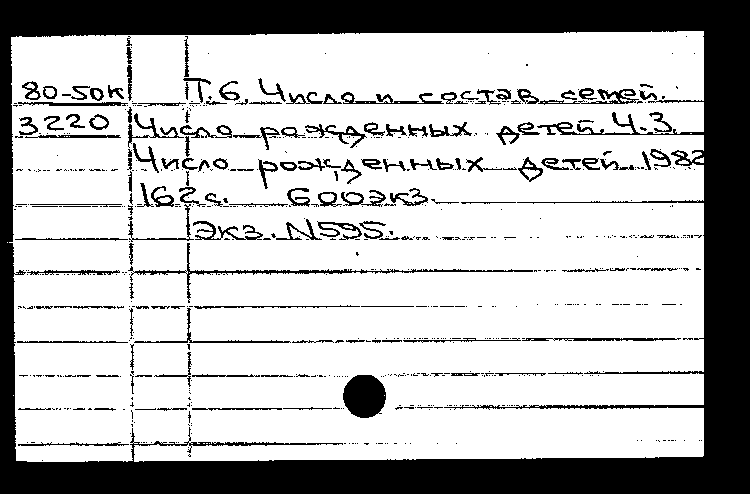 80-50к Т.6. Число и состав семей.
3220 Число рожденных детей. Ч.3.
Число рожденных детей. 1982
162с. 600экз.
Экз. N595.